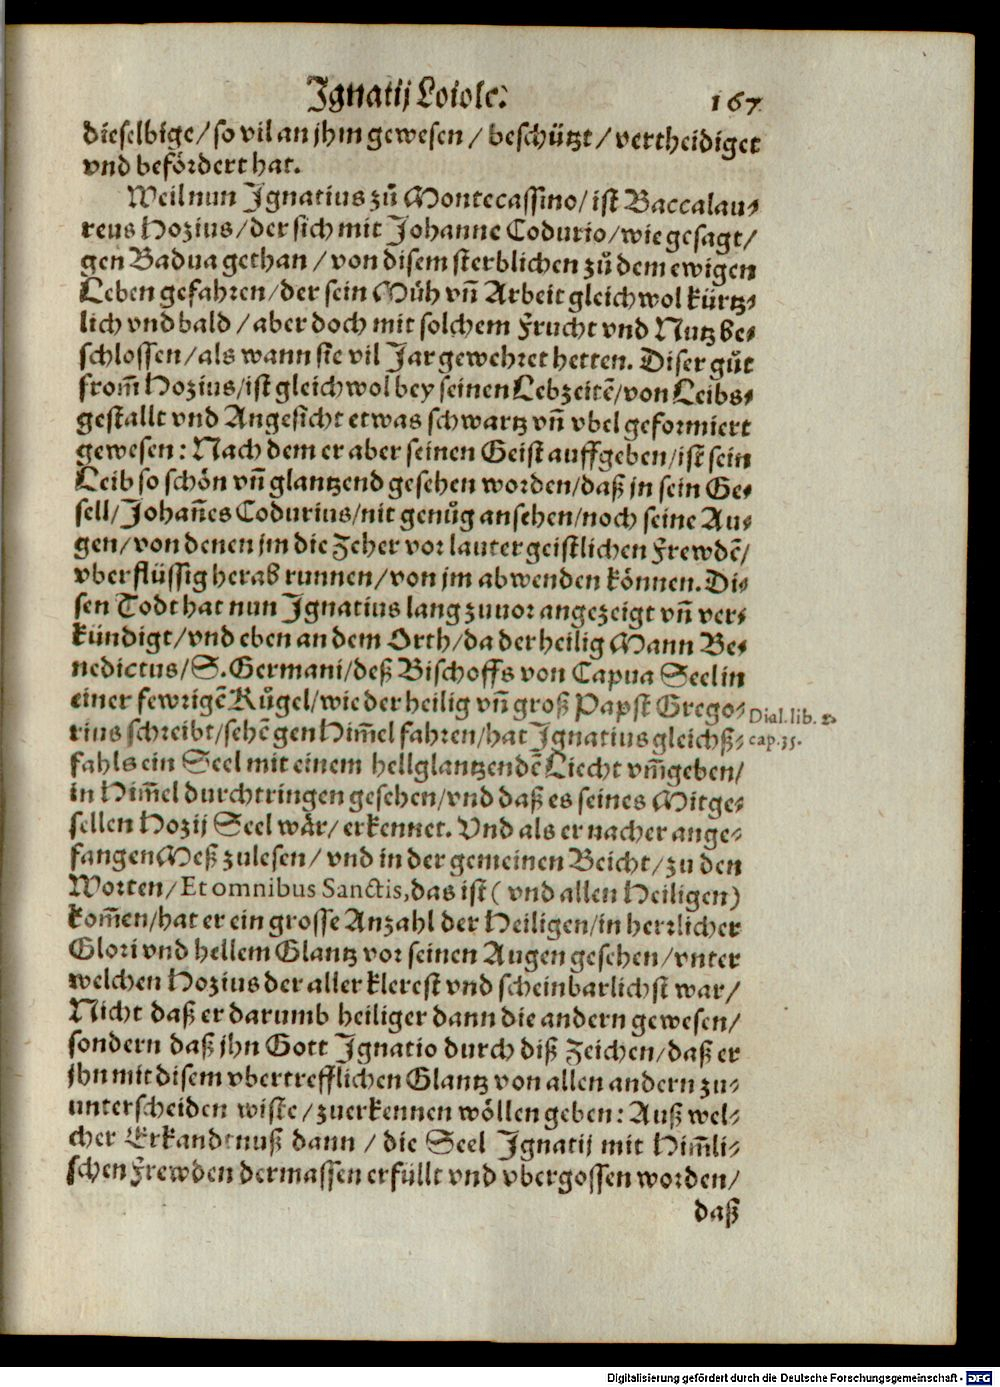 Ignatij Loiole:
167
dieselbige/ so vil an jhm gewesen / beschützt / vertheidiget
vnd befördert hat.
Weil nun Ignatius zů Montecassino/ ist Baccalau-
reus Hozius/ der sich mit Johanne Codurio/ wie gesagt/
gen Badua gethan / von disem sterblichen zů dem ewigen
Leben gefahren/ der sein Müh vñ Arbeit gleichwol kürtz-
lich vnd bald / aber doch mit solchem Frucht vnd Nutz be-
schlossen/ als wann sie vil Jar gewehret hetten. Diser gůt
from̃ Hozius/ ist gleichwol bey seinen Lebzeitẽ/ von Leibs-
gestallt vnd Angesicht etwas schwartz vñ vbel geformiert
gewesen: Nach dem er aber seinen Geist auffgeben/ ist sein
Leib so schön vñ glantzend gesehen worden/ daß jn sein Ge-
sell/ Johañes Codurius/ nit genůg ansehen/ noch seine Au-
gen/ von denen jm die Zeher vor lauter geistlichen Frewdẽ/
vberflüssig herab runnen/ von jm abwenden können. Di-
sen Todt hat nun Ignatius lang zuuor angezeigt vñ ver-
kündigt/ vnd eben an dem Orth/ da der heilig Mann Be-
nedictus/ S. Germani/ deß Bischoffs von Capua Seel in
einer fewrigẽ Kůgel/ wie der heilig vñ groß Papst Grego-
rius schreibt/ sehẽ gen Him̃el fahren/ hat Ignatius gleichß-
fahls ein Seel mit einem hellglantzendẽ Liecht vm̃geben/
in Him̃el durchtringen gesehen/ vnd daß es seines Mitge-
sellen Hozij Seel wår/ erkennet. Vnd als er nacher ange-
fangen Meß zulesen / vnd in der gemeinen Beicht/ zu den
Worten/ Et omnibus Sanctis, das ist ( vnd allen Heiligen)
kom̃en/ hat er ein grosse Anzahl der Heiligen/ in herrlicher
Glori vnd hellem Glantz vor seinen Augen gesehen/ vnter
welchen Hozius der aller klerest vnd scheinbarlichst war/
Nicht daß er darumb heiliger dann die andern gewesen/
sondern daß jhn Gott Ignatio durch diß Zeichen/ daß er
jhn mit disem vbertrefflichen Glantz von allen andern zu-
unterscheiden wiste/ zuerkennen wöllen geben: Auß wel-
cher Erkandtnuß dann / die Seel Ignatij mit Him̃li-
schen Frewden dermassen erfüllt vnd vbergossen worden/
daß
Dial. lib. 2.
cap. 35.
Digitalisierung gefördert durch die Deutsche Forschungsgemeinschaft - DFG